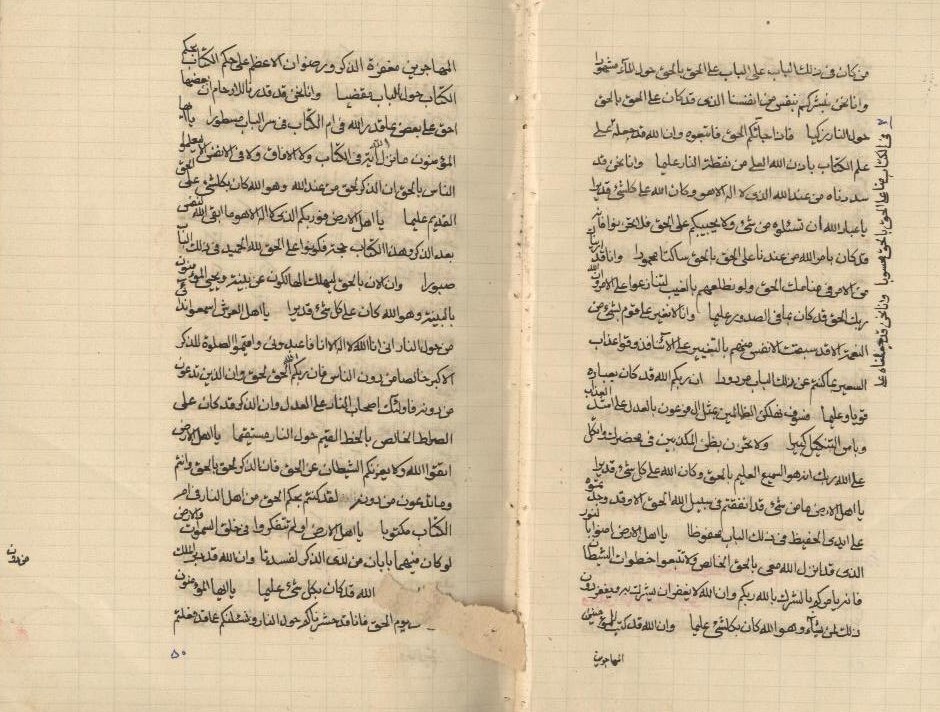 من كان في ذلك الباب على الباب على الحق بالحق حول الماء مشهودا
وانا نحن نبشركم بنفس من انفسنا الذي قد كان على الحق بالحق
حول النار زكيا فاذا جائكم الحق فاتبعوه وان الله قد جعله على
علم الكتاب باذن الله العلي من نقطة النار عليما وانا نحن قد
سددناه من عند الله الذي لا اله الا هو وكان الله على كلشئ قديرا
يا عباد الله ان تسئلوه من شئ ولا يجيبكم على الحق فلا تحزنوا فانه
قد كان بامر الله من عندنا على الحق بالحق ساكتا محمودا وانا قد
من الامر في منامك الحق ولو نطلعهم بالغيب لتنازعوا على الامر وان الله
ربك الحق قد كان بما في الصدور عليما وانا لا نغير على قوم بشئ من
النعمة الا قد سبقت الانفس منهم بالتغيير على الآ فذوقوا عذاب
السعير بما كنتم عن ذلك الباب مردودا ان ربكم الله قد كان بعباده
قويا وعليما فسوف نهلكن الظالمين بمثل ال فرعون بالعدل على اشد العذاب
وباس التنكيل كبيرا ولا تحزن بظن المكذبين في وتوكل
على الله ربك انه هو السميع العليم بالحق وكان الله على كل شئ قديرا
يا اهل الارض ما من شئ قد انفقتم في سبيل الله الحق الا وقد وجدتموه
على ايدي الحفيظ في ذلك الباب محفوظا يا اهل الارض امنوا بالنور
الذي قد انزل الله معي بالحق الخالص ولا تتبعوا خطوات الشيطان
فانه يامركم بالشرك بالله ربكم وان الله لا يغفر ان يشرك به ويغفر دون
ذلك لمن يشاء وهو الله كان بكلشئ عليما وان الله قد كتب للمؤمنين
المهاجرين
في الكتاب على الحق بالحق محسوبا وانا نحن قد جعلناه على
المهاجرين مغفرة الذكر ورضوان الاعظم على حكم الكتاب بحكم
الكتاب حول الباب مقضيا وانا نحن قد قدرنا للارحام ان بعضها
احق على بعض بما قدر الله في ام الكتاب في سر الباب مسطورا يا ايها
المؤمنون ما نزل الله اية في الكتاب ولا الافاق ولا في الانفس الا ليعلموا
الناس بالحق ان الذكر لحق من عند الله وهو الله كان بكلشئ على الحق
القديم عليما يا اهل الارض فوربكم الذي لا اله الا هو ما ابقى الله لنفس
بعد الذكر وهذا الكتاب حجة فكونوا على الحق لله الحميد في ذلك الباب
صبورا وان الان بالحق ليهلك الهالكون عن بينة ويحيى المؤمنون
بالبينة وهو الله كان على كل شئ قديرا يا اهل العرش اسمعوا ندائي
من حول النار اني انا الله لا اله الا انا فاعبدوني واقيموا الصلوة للذكر
الاكبر خالصا من دون الناس فان ربكم الله الحق لحق وان الذين تدعون
من دونه فاولئك اصحاب النار على العدل وان الذكر قد كان على
الصراط الخالص بالخط القيم حول النار مستقيما يا اهل الارض
اتقوا الله ولا يغرنكم الشيطان عن الحق فان الذكر لحق بالحق وانتم
وما تدعون من دونه لقد كنتم بحكم الحق من اهل النار في ام
الكتاب مكتوبا يا اهل الارض اولم تتفكروا في خلق السموات والارض
لو كان فيهما بابان من لدى الذكر لفسدتا وان الله قد الملك
الله قد كان بكل شئ عليما يا ايها المؤمنون
يوم الحق فانا قد حشرناكم حول النار ونسئلنكم عما قد فعلتم
من دون
٥٠